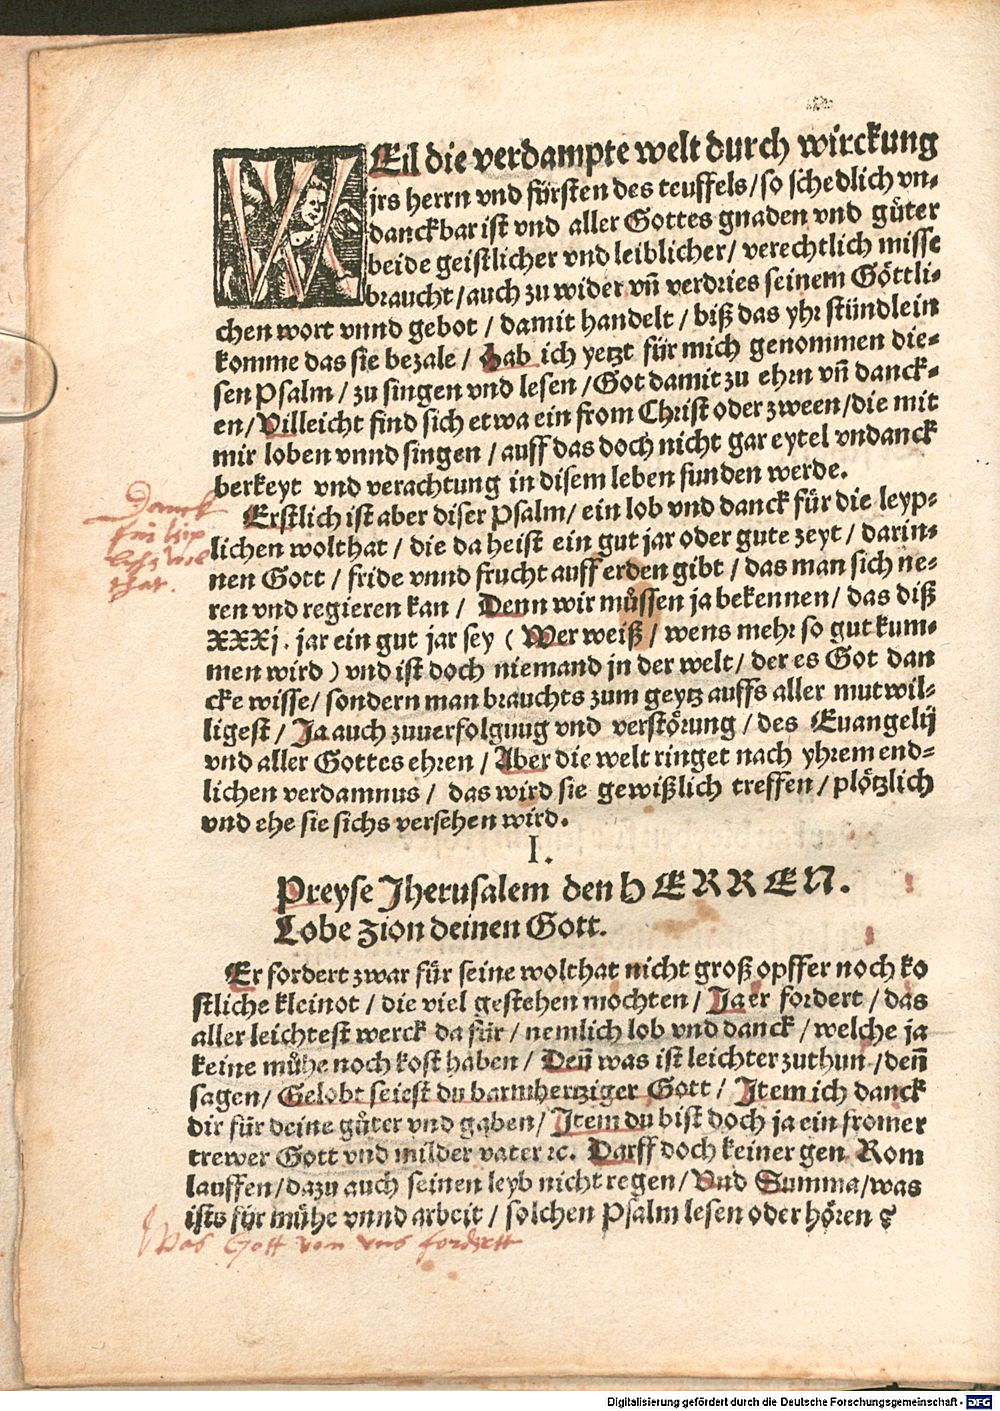 WEil die verdampte welt durch wirckung
jrs herrn vnd fürsten des teuffels/so schedlich vn-
danckbar ist vnd aller Gottes gnaden vnd gůter
beide geistlicher vnd leiblicher/ verechtlich misse
braucht/auch zu wider vn̄ verdries seinem Göttli-
chen wort vnnd gebot / damit handelt / biß das yhr stündlein
komme das sie bezale / Hab ich yetzt für mich genommen die-
sen Psalm / zu singen vnd lesen /Got damit zu ehrn vn̄ danck-
en/ Villeicht find sich etwa ein from Christ oder zween/die mit
mir loben vnnd singen / auff das doch nicht gar eytel vndanck
berkeyt vnd verachtung in disem leben funden werde.
Erstlich ist aber diser Psalm/ ein lob vnd danck für die leyp-
Danck
für leip
liche wol
that.
lichen wolthat / die da heist ein gut jar oder gute zeyt / darin-
nen Gott / fride vnnd frucht auff erden gibt / das man sich ne-
ren vnd regieren kan / Denn wir můssen ja bekennen/ das diß
XXXj. jar ein gut jar sey ( Wer weiß / wens mehr so gut kum-
men wird ) vnd ist doch niemand jn der welt/ der es Got dan
cke wisse/ sondern man brauchts zum geytz auffs aller mutwil-
ligest / Ja auch zuuerfolgnug vnd verstörung / des Euangelij
vnd aller Gottes ehren / Aber die welt ringet nach yhrem end-
lichen verdamnus / das wird sie gewißlich treffen / plötzlich
vnd ehe sie sichs versehen wird.
I.
Preyse Jherusalem den HERREN.
Lobe Zion deinen Gott.
Er fordert zwar für seine wolthat nicht groß opffer noch ko
stliche kleinot / die viel gestehen mochten / Ja er fordert / das
aller leichtest werck da für / nemlich lob vnd danck / welche ja
keine můhe noch kost haben / Den̄ was ist leichter zuthun / den̄
sagen/ Gelobt seiest du barmhertziger Gott / Item ich danck
dir für deine gůter vnd gaben/ Item du bist doch ja ein fromer
trewer Gott vnd milder vater ꝛc. Darff doch keiner gen Rom
lauffen/ dazu auch seinen leyb nicht regen/ Vnd Summa/was
ists für můhe vnnd arbeit / solchen Psalm lesen oder hören ?
Was Gott von vns fordertt
Digitalisierung gefördert durch die Deutsche Forschungsgemeinschaft - DFG